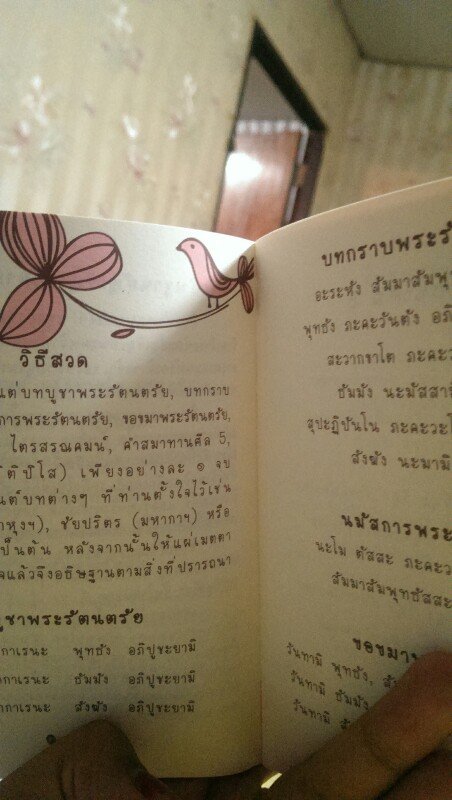 วิธีสวด
บทบูชาพระรัตนตรัย, บทกราบ
การพระรัตนตรัย, ขอขมาพระรัตนตรัย,
ไตรสรณคมน์, คำสมาทานศีล 5,
เพียงอย่างละ ๑ จบ
บทต่างๆ ที่ท่านตั้งใจไว้เช่น
ชัยปริตร (มหากาฯ) หรือ
เป็นต้น หลังจากนั้นให้แผ่เมตตา
แล้วจึงอธิษฐานตามสิ่งที่ปรารถนา
บูชาพระรัตนตรัย
กาเรนะ พุทธัง อภิปูชะยามิ
กาเรนะ ธัมมัง อภิปูชะยามิ
กาเรนะ สังฆัง อภิปูชะยามิ
บทกราบพระรั
อะระหัง สัมมาสัมพุ
พุทธัง ภะคะวันตัง อภิ
สะวากขาโต ภะคะวะ
ธัมมัง นะมัสสา
สุปะฏิปันโน ภะคะวะโ
สังฆัง นะมามิ
นมัสการพระ
นะโม ตัสสะ ภะคะว
สัมมาสัมพุทธัสสะ
ขอขมา
วันทามิ พุทธัง,
วันทามิ ธัมมัง
วันทามิ สั